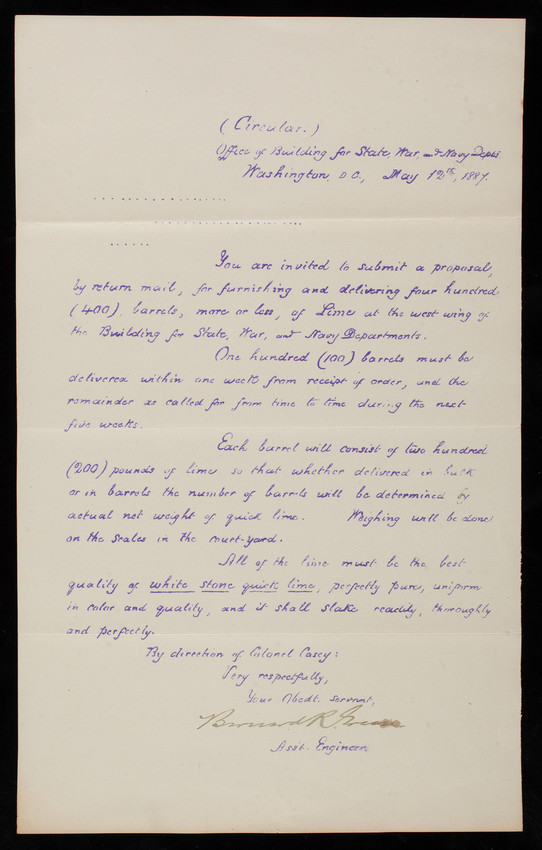 (Circular.)
Office of Building for State, War, and Navy Depts
Washington, D.C., May 12th, 1887.
You are invited to submit a proposal,
by return mail, for furnishing and delivering four hundred
(400), barrels, more or less, of Lime at the west wing of
the Building for State, War, and Navy Departments.
One hundred (100) barrels must be
delivered within one week from receipt of order, and the
remainder as called for from time to time during the next
five weeks.
Each barrel will consist of two hundred
(200) pounds of lime so that whether delivered in bulk
or in barrels the number of barrels will be determined by
actual net weight of quick lime. Weighing will be done
on the scales in the court-yard.
All of the lime must be the best
quality of white stone quick lime, perfectly pure, uniform
in color and quality, and it shall slake readily, thoroughly
and perfectly.
By direction of Colonel Casey:
Very respectfully,
Your Obedt. servant,
Bernard R. Green
Asst. Engineer